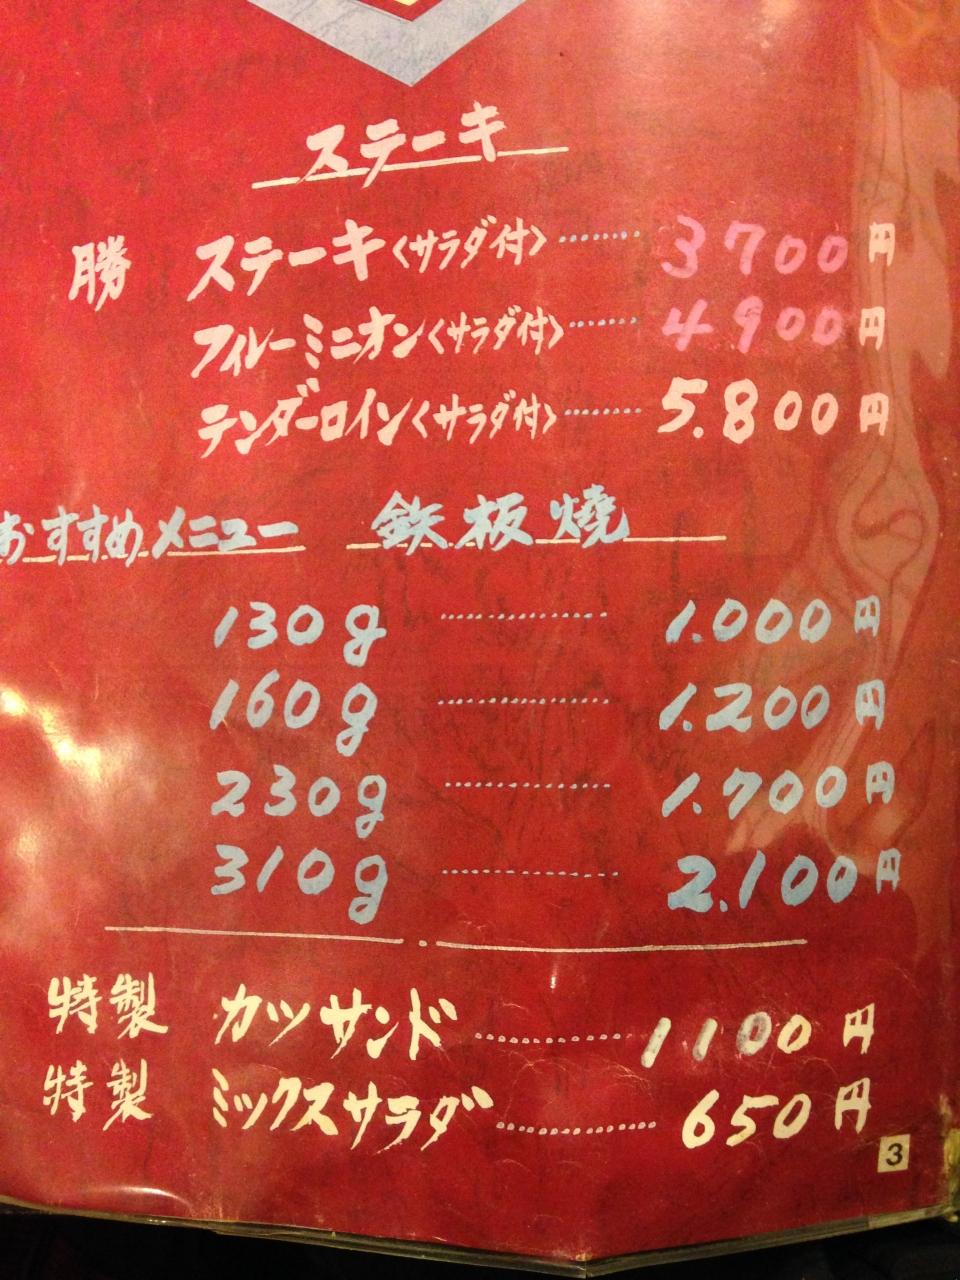 ステーキ
勝 ステーキ〈サラダ付〉……… 3700円
フィレーミニオン〈サラダ付〉……… 4900円
テンダーロイン〈サラダ付〉……… 5.800円
おすすめメニュー 鉄板焼
130g ……… 1.000円
160g ……… 1.200円
230g ……… 1.700円
310g ……… 2.100円
特製 カツサンド ……… 1100円
特製 ミックスサラダ ……… 650円
3